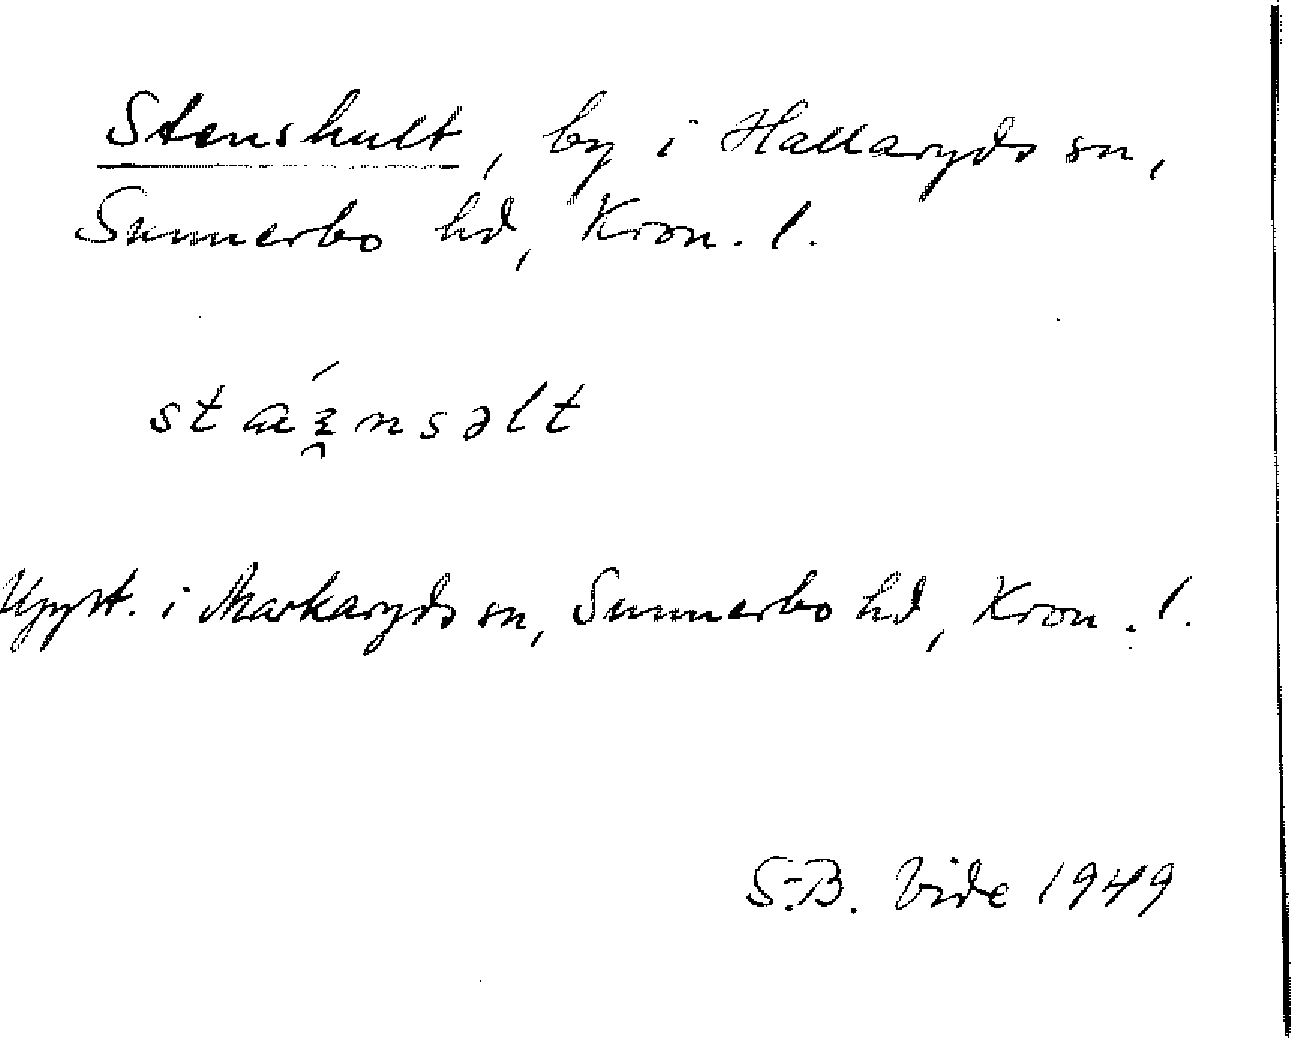 Stenshult, by i Hallaryds sn,
Sunnerbo hd, Kron. l.
Uppt. i Markaryds sn, Sunnerbo hd, Kron. l.
S-B. Vide 1949